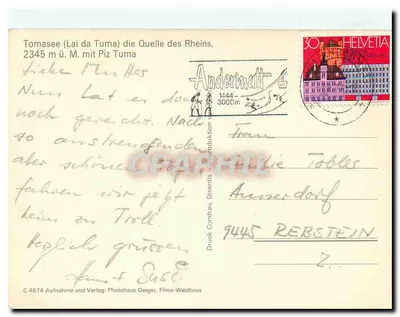 Tomasee (Lai da Tuma) die Quelle des Rheins,
2345 m ü. M. mit Piz Tuma
Liebe Mutter
Nun hat es doch
noch gereicht. Nach
so anstrengenden
aber schönen
fahren wir jetzt
heim zu Troll.
Herzlich grüssen
Susi
C 4674 Aufnahme und Verlag: Photohaus Geiger, Flims-Waldhaus
Druck Condrau, Disentis
Andermatt
1444-
3000m
30 HELVETIA
Frau
Tobler
Ausserdorf
9445 REBSTEIN
CPARAMA